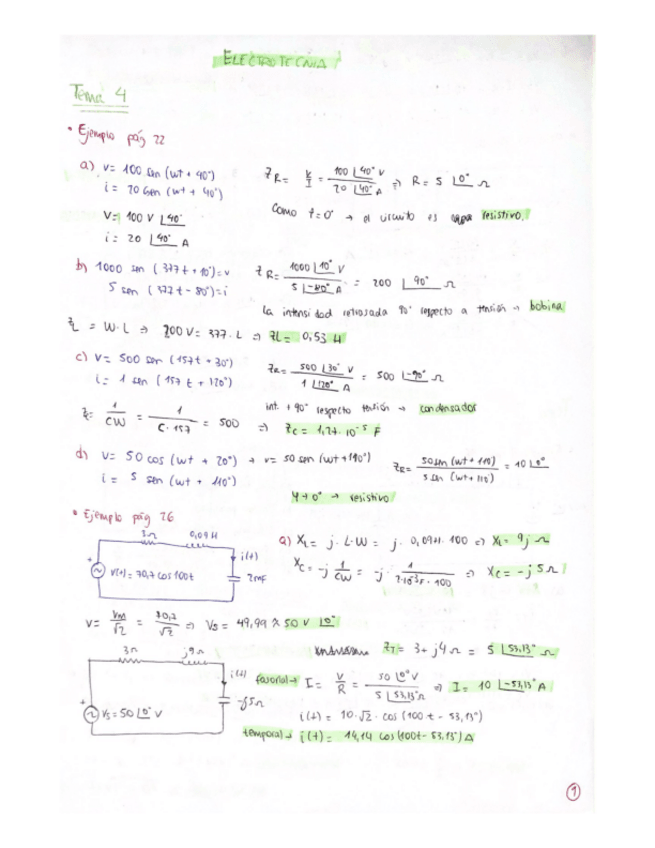 ELECTROTECNIA
Tema 4
• Ejemplo pág 22
a) v= 100 sen (wt + 40°)
i = 20 sen (wt + 40°)
V= 100 V ∠40°
i = 20 ∠40° A
Z R = V/I = 100 ∠40° V / 20 ∠40° A => R = 5 ∠0° Ω
Como φ=0° → el circuito es resistivo.
b) 1000 sen (377t + 10°)=v
5 sen (377t - 80°)=i
Z R = 1000 ∠10° V / 5 ∠-80° A = 200 ∠90° Ω
La intensidad retrasada 90° respecto a tensión → bobina
ZL = W·L => 200V = 377·L => ZL = 0,53 H
c) v= 500 sen (157t + 30°)
i = 1 sen (157t + 120°)
ZR= 500 ∠30° V / 1 ∠120° A = 500 ∠-90° Ω
int. +90° respecto tensión → condensador
Z= 1/CW = 1/C·157 = 500 => ZC = 1,27·10⁻⁵ F
d) v= 50 cos (wt + 20°) → v= 50 sen (wt + 110°)
i = 5 sen (wt + 110°)
ZR= 50 sen (wt + 110) / 5 sen (wt + 110°) = 10 ∠0°
φ=0° → resistivo
• Ejemplo pág 26
3Ω 0,09H
+
v(t)= 70,7 cos 100t
i(t)
2mF
a) XL= j·L·W = j·0,09H·100 => XL= 9j Ω
XC= -j 1/CW = -j· 1/2·10⁻³F·100 => XC= -j5Ω
V= VM/√2 = 70,7/√2 => VS = 49,99 ≈ 50 V ∠0°
ZT= 3+j4Ω = 5 ∠53,13° Ω
3Ω j9Ω
+
VS=50∠0° V
i(t)
-j5Ω
fasorial → I = V/R = 50 ∠0° V / 5 ∠53,13° Ω => I = 10 ∠-53,13° A
i(t) = 10·√2·cos (100t - 53,13°)
temporal → i(t) = 14,14 cos (100t - 53,13°) A
1